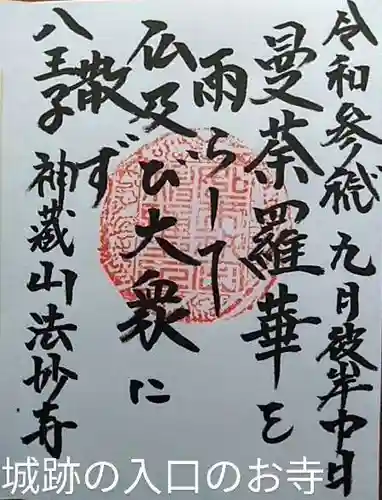 令和参祀九月彼岸中日
曼荼羅華を
雨らして
仏及び大衆に
散ず
八王子 神蔵山法妙寺
城跡の入口のお寺